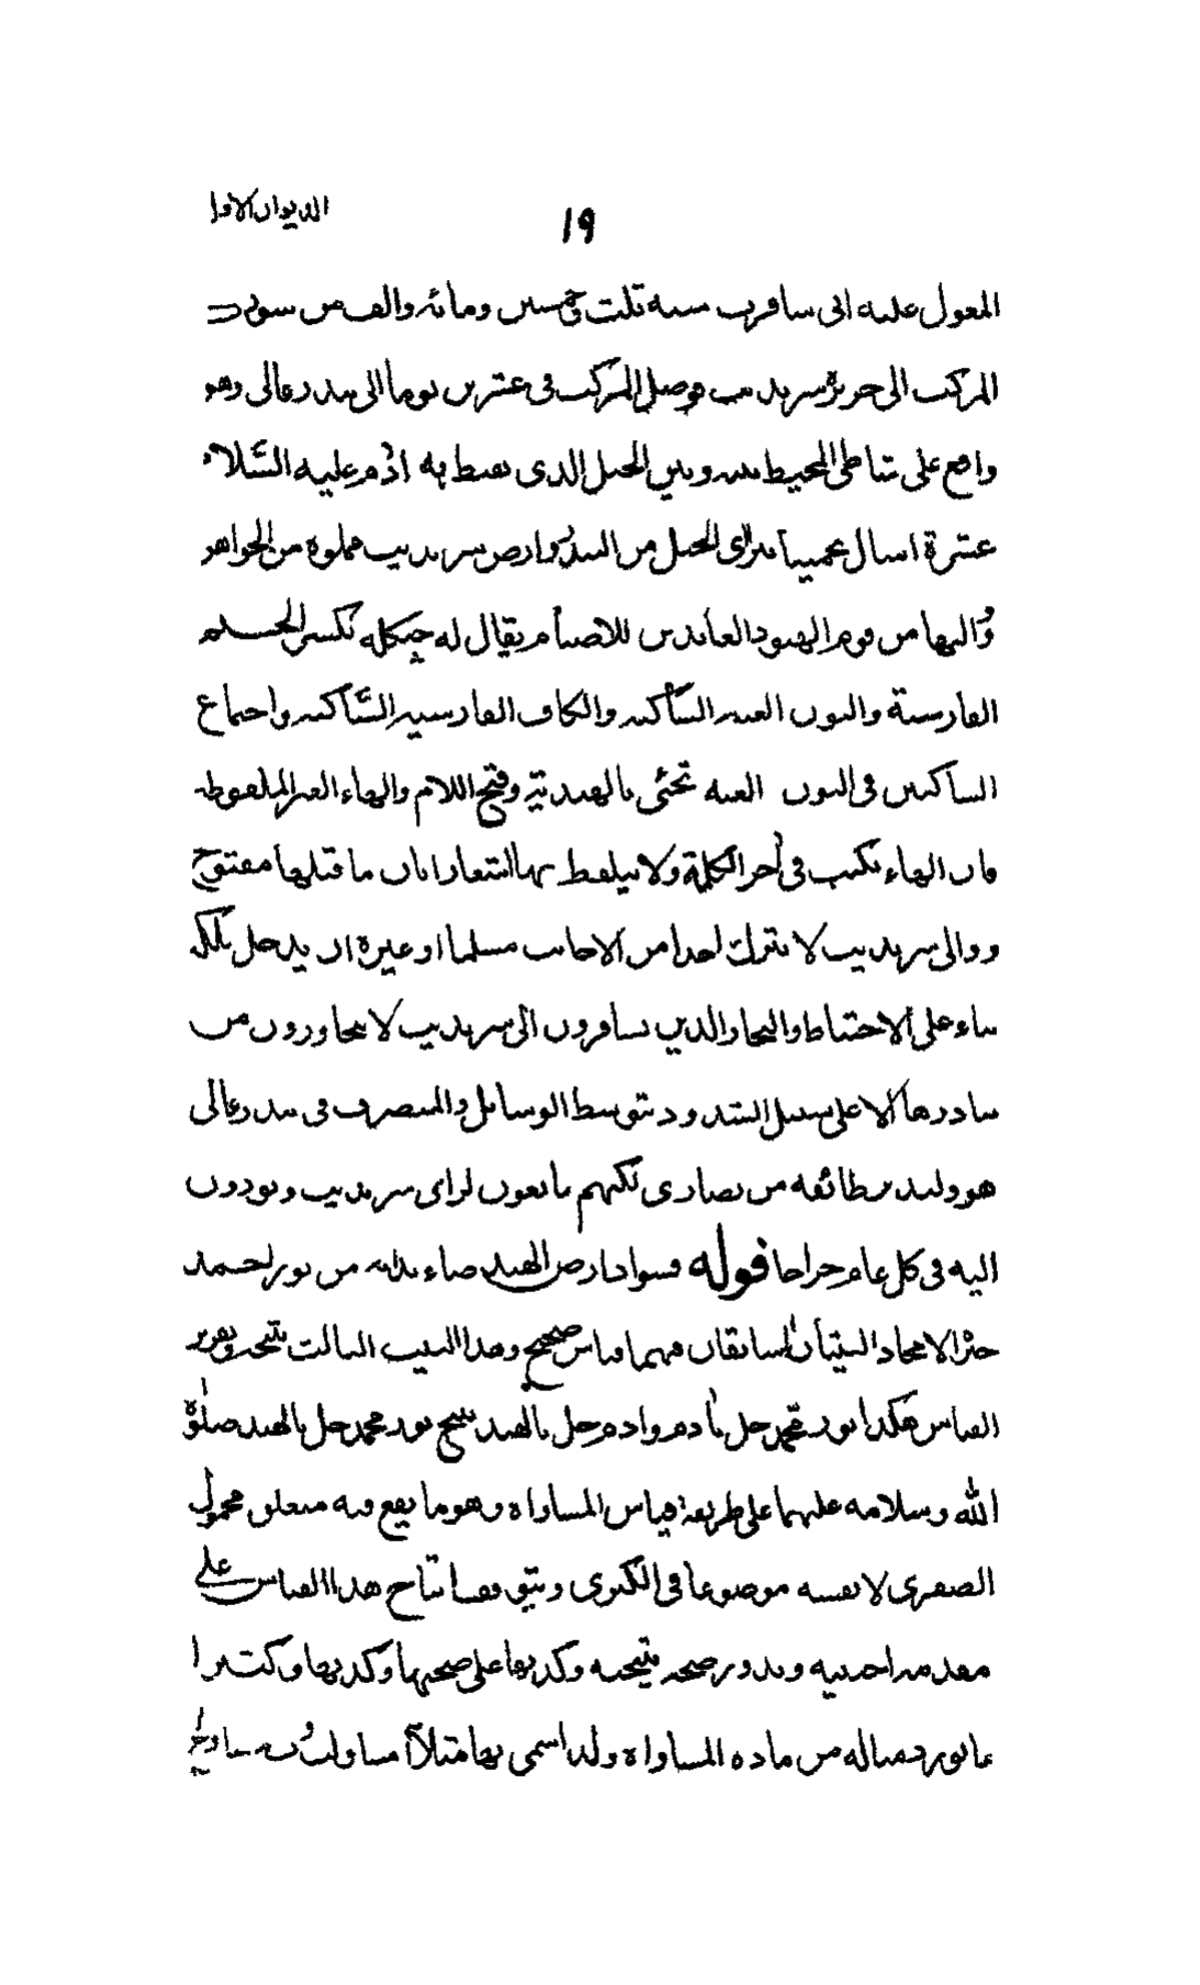 الديوان الاول
١٩
المعول عليه اني سافرت سنة ثلث وخمسين ومائة والف من سورت
المركب الى جزيرة سرنديب فوصل المركب في عشرين يوما الى بندر غالى وهو
واقع على شاطى المحيط بينه وبين الجبل الذي هبط به ادم عليه السلام
عشرة اميال عجميا يترااى الجبل من البندر وارض سرنديب مملوة من الجواهر
واليها من قوم الهنود العابدين للاصنام يقال له چنكله بكسر الجيم
الفارسية والنون الغنه الساكنه والكاف الفارسيه الساكنه واجماع
الساكنين في النون الغنه تجئى بالهندية وفتح اللام والهاء الغير الملفوظه
فان الهاء تكتب في آخر الكلمة ولا يتلفظ بها اشعارا بان ما قبلها مفتوح
ووالى سرنديب لا يترك احدا من الاجانب مسلما او غيره ان يدخل ملكه
بناء على الاحتياط والتجار الذين يسافرون الى سرنديب لا يتجاوزون من
بنادرها الا على سبيل الشذوذ بتوسط الوسائل والمتصرف في بندر غالى
هو وليدير طائفه من نصارى لكنهم تابعون لراى سرنديب ويودون
اليه في كل عام خراجا قوله فسواد ارض الهند ضاء بدايه من نور احمد
الايجاد البيتان السابقان فهما قياس صحيح وهذا البيت الثالث نتيجته وتقرير
القياس هكذا نور محمد حل بادم وادم حل بالهند ينتج نور محمد حل بالهند صلوة
الله وسلامه عليهما على طريقة قياس المساواة وهو ما يقع فيه متعلق محمول
الصغرى لا نفسه موضوعا في الكبرى ويتوقف انتاج هذا القياس على
مقدمه اجنبيه ويدور صحه نتيجه وكذبها على صحتها وكذبها وكثيرا
ما يورد مثاله من مادة المساواة ولذا سمى بها مثلا آ مساو لب وب مساو لج